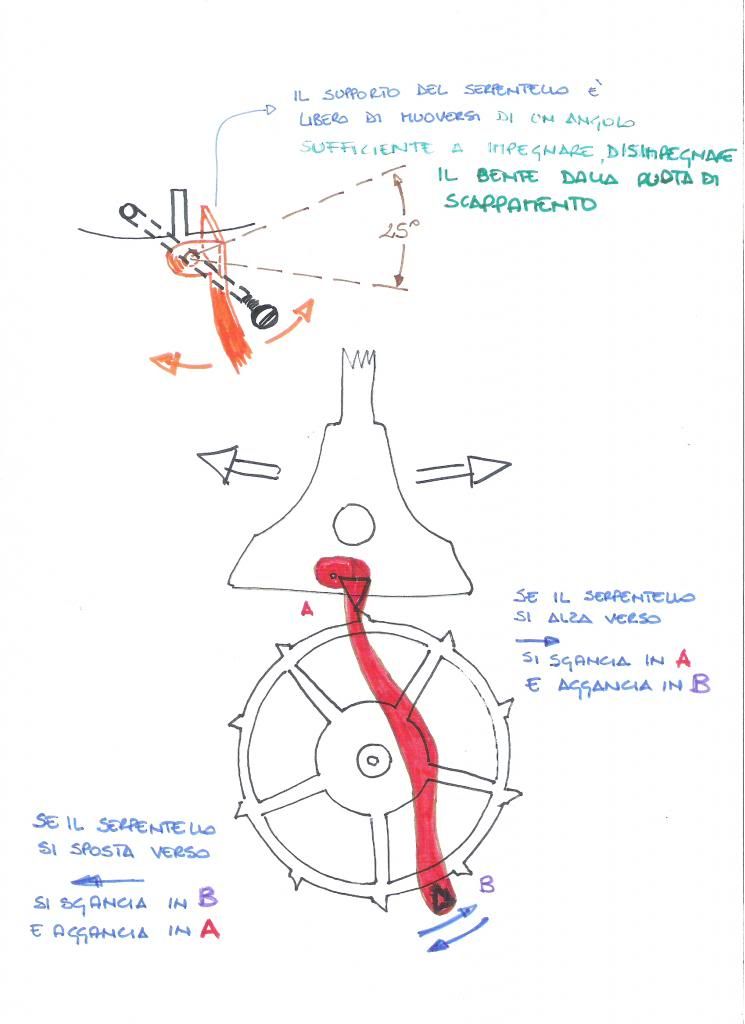 IL SUPPORTO DEL SERPENTELLO È
LIBERO DI MUOVERSI DI UN ANGOLO
SUFFICIENTE A IMPEGNARE, DISIMPEGNARE
IL DENTE DALLA RUOTA DI
SCAPPAMENTO
25°
A
SE IL SERPENTELLO
SI ALZA VERSO
SI SGANCIA IN A
E AGGANCIA IN B
SE IL SERPENTELLO
SI SPOSTA VERSO
SI SGANCIA IN B
E AGGANCIA IN A
B